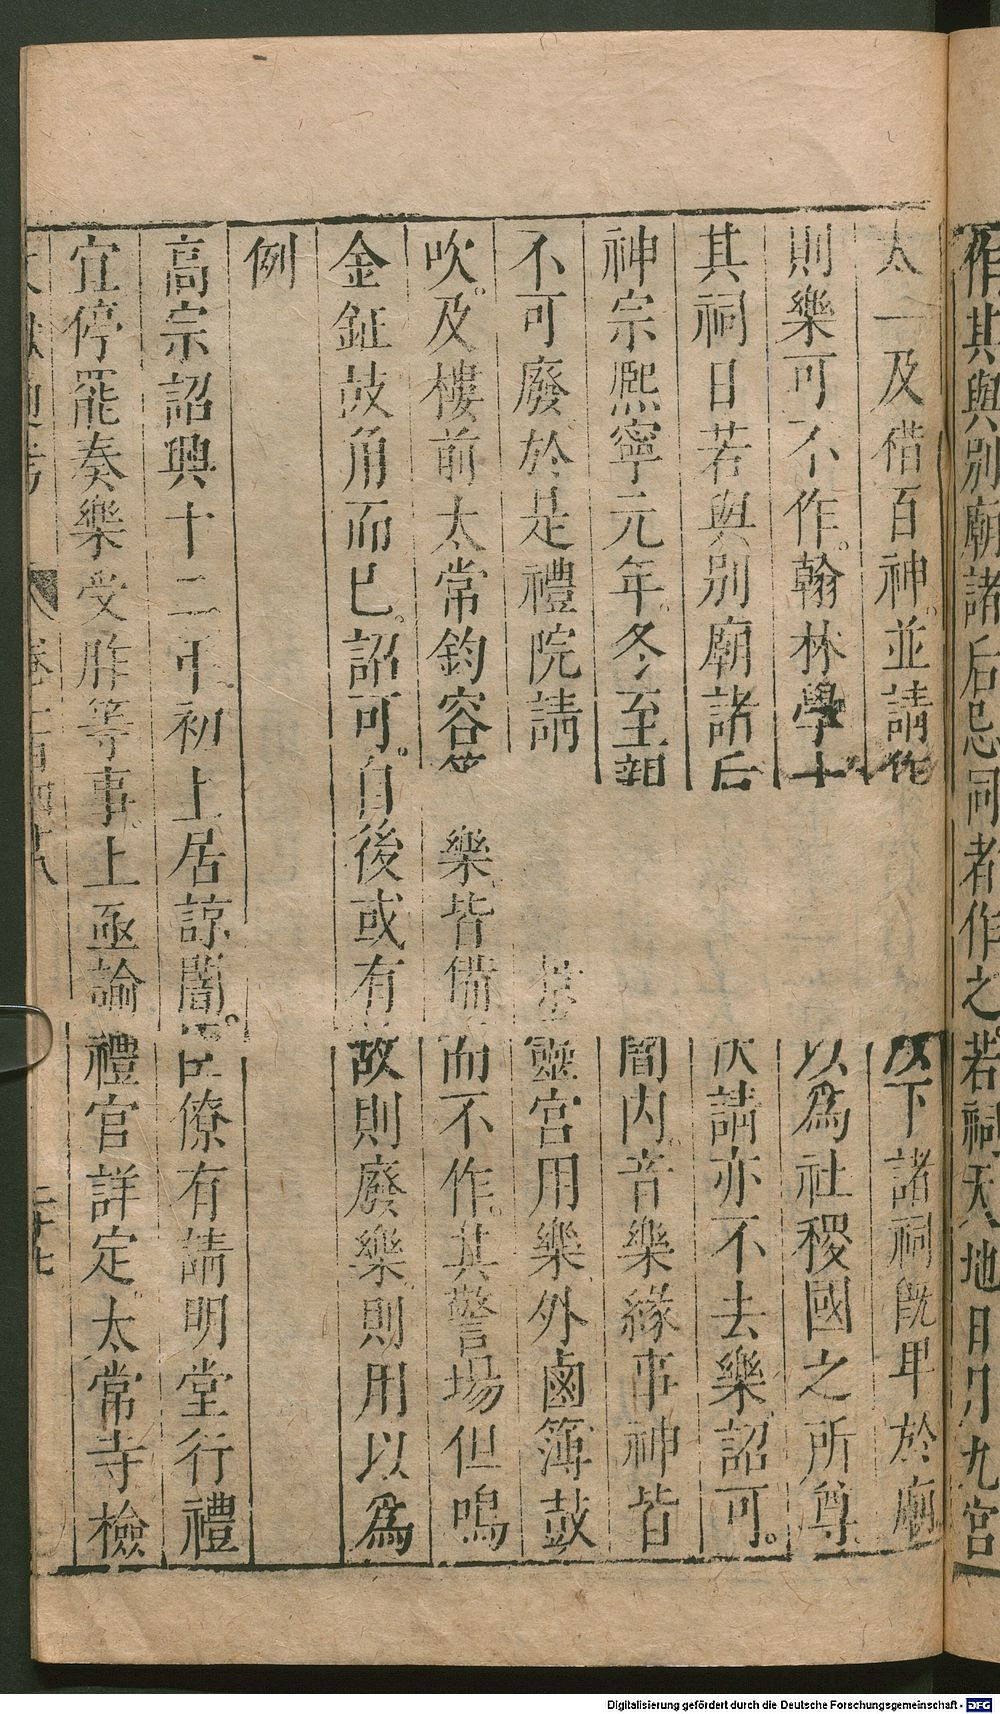 作其與別廟諸后忌同者作之若祠天地日月九宮
太一及蜡百神並請作以下諸祠旣卑於廟
則樂可不作翰林學士以爲社稷國之所尊
其祠日若與別廟諸后伏請亦不去樂詔可
神宗熙寧元年冬至親闇內音樂緣事神皆
不可廢於是禮院請景靈宮用樂外鹵簿鼓
吹及樓前太常鈞容等樂皆備而不作其警場但鳴
金鉦鼓角而已詔可自後或有故則廢樂則用以爲
例
高宗詔興十二年初上居諒闇臣僚有請明堂行禮
宜停罷奏樂受胙等事上亟論禮官詳定太常寺檢
文獻通考 卷一百四十八 二十七
Digitalisierung gefördert durch die Deutsche Forschungsgemeinschaft - DFG